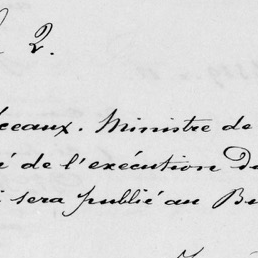 2.
sceaux. Ministre de
é de l'exécution du
i sera publié au Bu